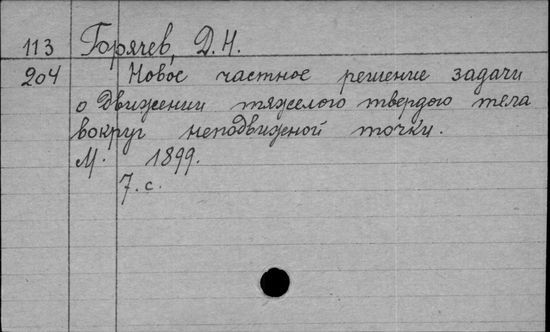 113 Горячев, Д.Н.
204 Новое частное решение задачи
о движении тяжелого твердого тела
вокруг неподвижной точки.
М. 1899.
7.с.